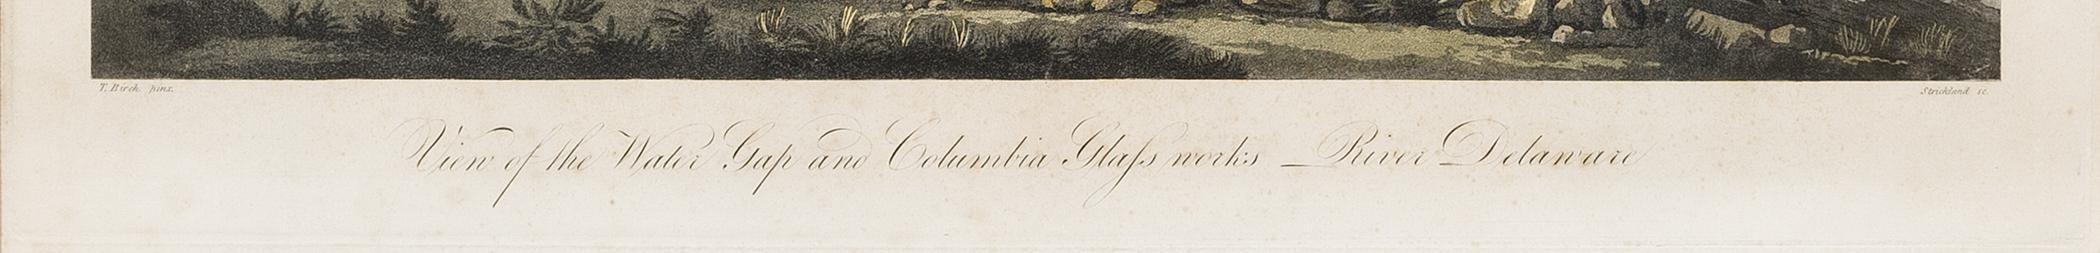 T. Birch pinx.
Strickland sc.
View of the Water Gap and Columbia Glaſs works — River Delaware